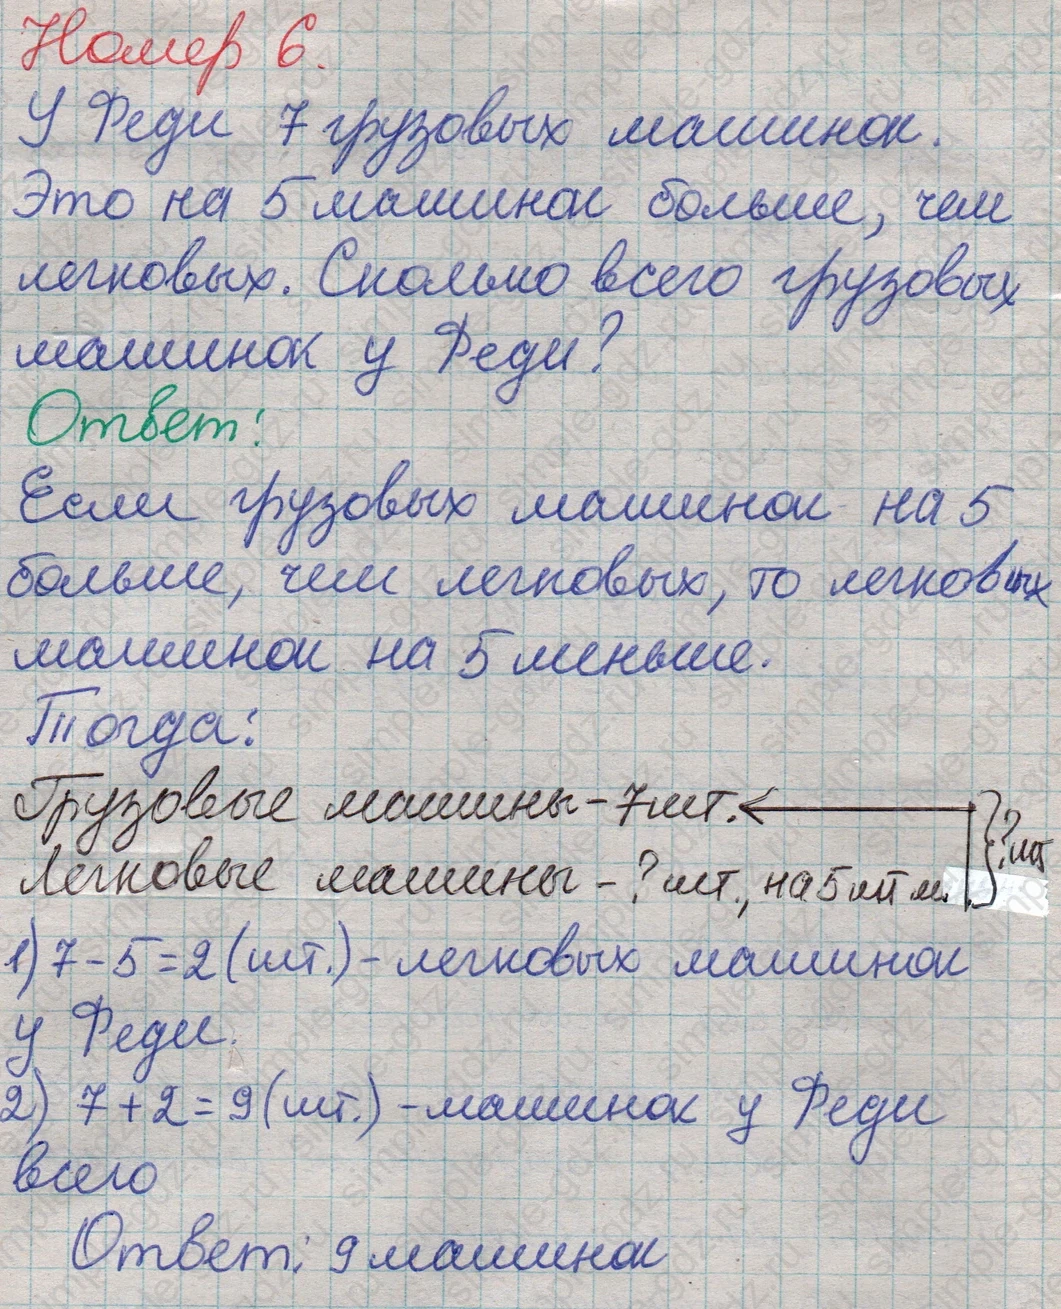 Номер 6.
У Феди 7 грузовых машинок.
Это на 5 машинок больше, чем
легковых. Сколько всего грузовых
машинок у Феди?
Ответ:
Если грузовых машинок на 5
больше, чем легковых, то легковых
машинок на 5 меньше.
Тогда:
Грузовые машины - 7 шт.
Легковые машины - ? шт., на 5 шт м. ? шт
1) 7 - 5 = 2 (шт.) - легковых машинок
у Феди.
2) 7 + 2 = 9 (шт.) - машинок у Феди
всего
Ответ: 9 машинок